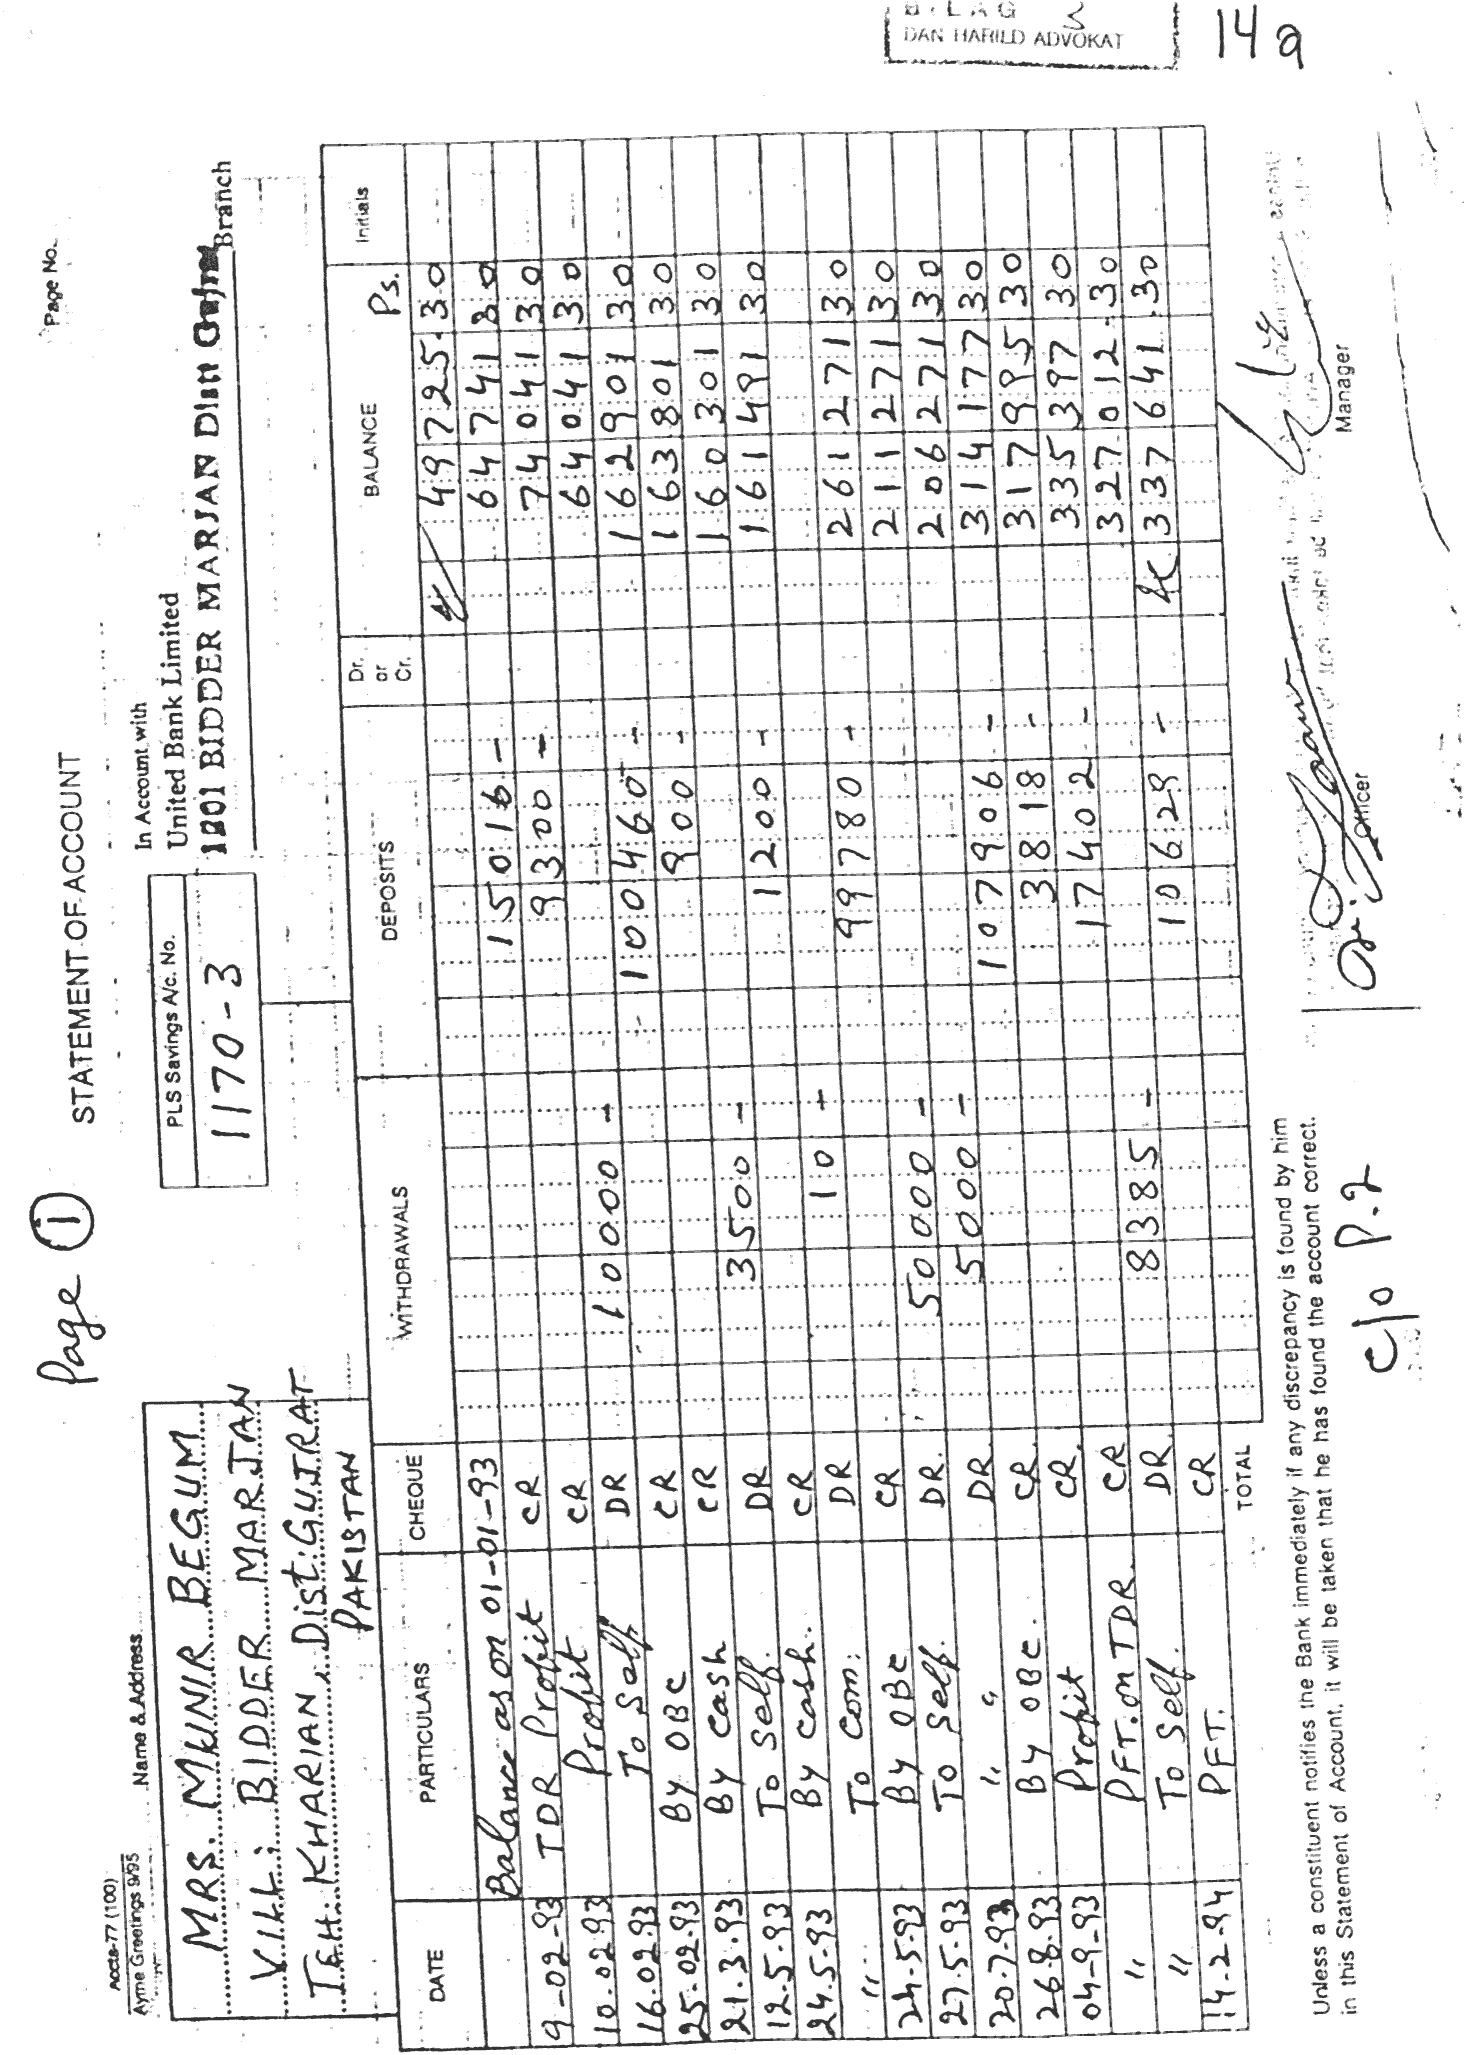 BILAG
DAN HARILD ADVOKAT
14a
Page No.
Page 1
STATEMENT OF ACCOUNT
Accts-77 (100)
Ayme Greetings 9/95
Name & Address
MRS. MUNIR BEGUM
VILL: BIDDER MARJAN
TEH: KHARIAN, Dist: GUJRAT
PAKISTAN
PLS Savings A/c. No.
1170-3
In Account with
United Bank Limited
1201 BIDDER MARJAN Distt Branch
DATE PARTICULARS CHEQUE WITHDRAWALS DEPOSITS Dr. or Cr. BALANCE Ps. Initials
Balance as on 01-01-93 49725.30
9-02-93 TDR Profit CR 15016 - 64741 30
10.02.93 Profit CR 9300 - 74041 30
16.02.93 To Self DR 10000 - 64041 30
25-02-93 By OBC CR 100460 - 162901 30
21.3.93 By Cash CR 900 - 163801 30
12.5.93 To Self. DR 3500 - 160301 30
24.5.93 By Cash. CR 1200 - 161491 30
" To Com: DR 10 -
24.5.93 By OBC CR 99780 - 261271 30
27.5.93 To Self. DR. 50000 - 211271 30
20.7.93 " " DR. 5000 - 206271 30
26.8.93 By OBC. CR. 107906 - 314177 30
04-9-93 Profit CR. 3818 - 317995 30
" PFT. on TDR. CR 17402 - 335397 30
" To Self. DR 8385 - 327012.30
14-2-94 PFT. CR 10629 - 337641.30
TOTAL
Unless a constituent notifies the Bank immediately if any discrepancy is found by him
in this Statement of Account, it will be taken that he has found the account correct.
Officer
Manager
C/o P.2